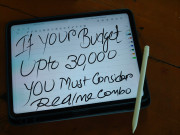 If Your Budget
Upto 30,000
YOU Must Consider
Realme Combo